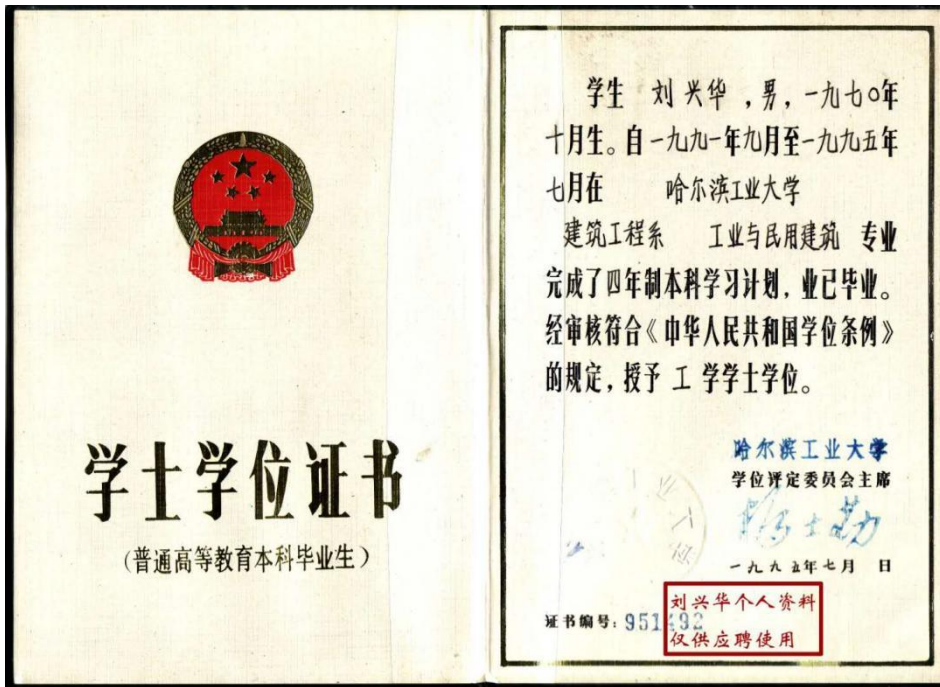 学士学位证书
(普通高等教育本科毕业生)
学生 刘兴华 ,男,一九七〇年
十月生。自一九九一年九月至一九九五年
七月在 哈尔滨工业大学
建筑工程系 工业与民用建筑 专业
完成了四年制本科学习计划,业已毕业。
经审核符合《中华人民共和国学位条例》
的规定,授予 工 学学士学位。
哈尔滨工业大学
学位评定委员会主席
一九九五年七月 日
证书编号:951492
刘兴华个人资料
仅供应聘使用